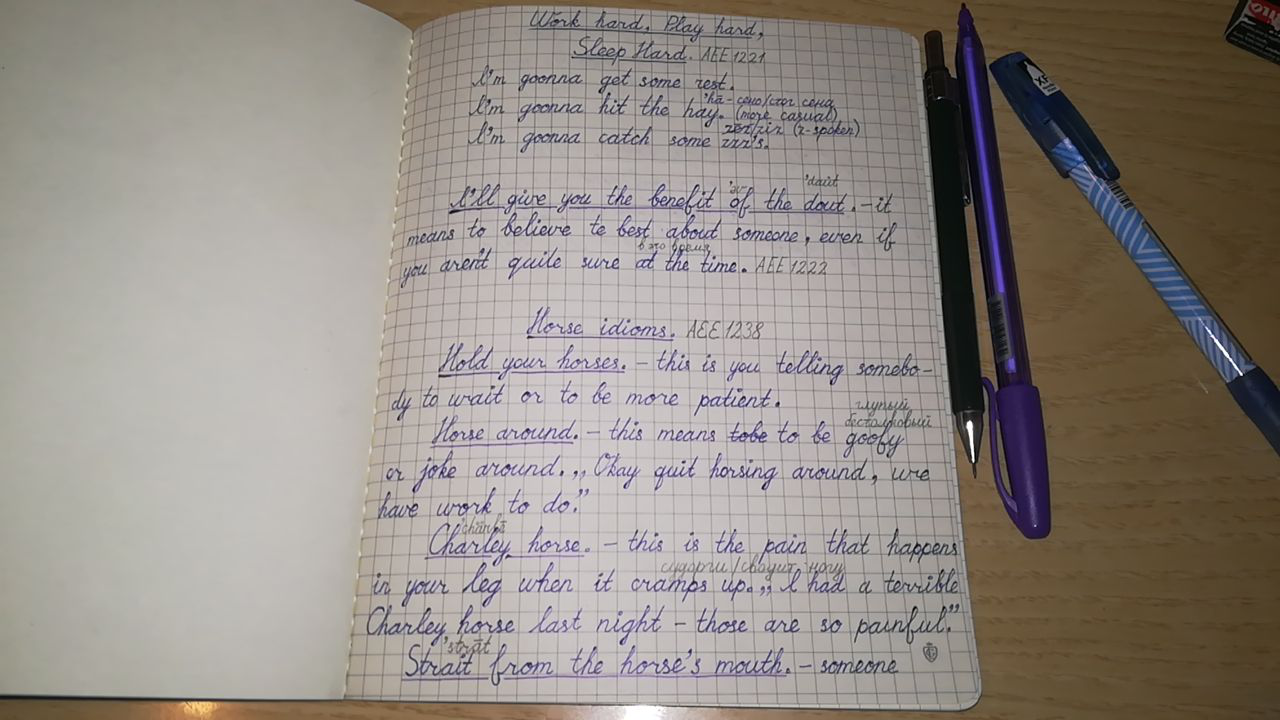 Work hard. Play hard,
Sleep Hard. AEE 1221
I'm goonna get some rest.
'hā - сено/стог сена
I'm goonna hit the hay. (more casual)
zēz/ziz (z-spoken)
I'm goonna catch some zzz's.
'əv 'daut
I'll give you the benefit of the dout. - it
means to believe te best about someone, even if
в это время
you aren't quite sure at the time. AEE 1222
Horse idioms. AEE 1238
Hold your horses. - this is you telling somebo-
dy to wait or to be more patient.
глупый
бестолковый
Horse around. - this means tobe to be goofy
or joke around. „Okay quit horsing around, we
have work to do."
Charley horse. - this is the pain that happens
судороги/сводит ногу
in your leg when it cramps up. „I had a terrible
Charley horse last night - those are so painful."
'strāt
Strait from the horse's mouth. - someone